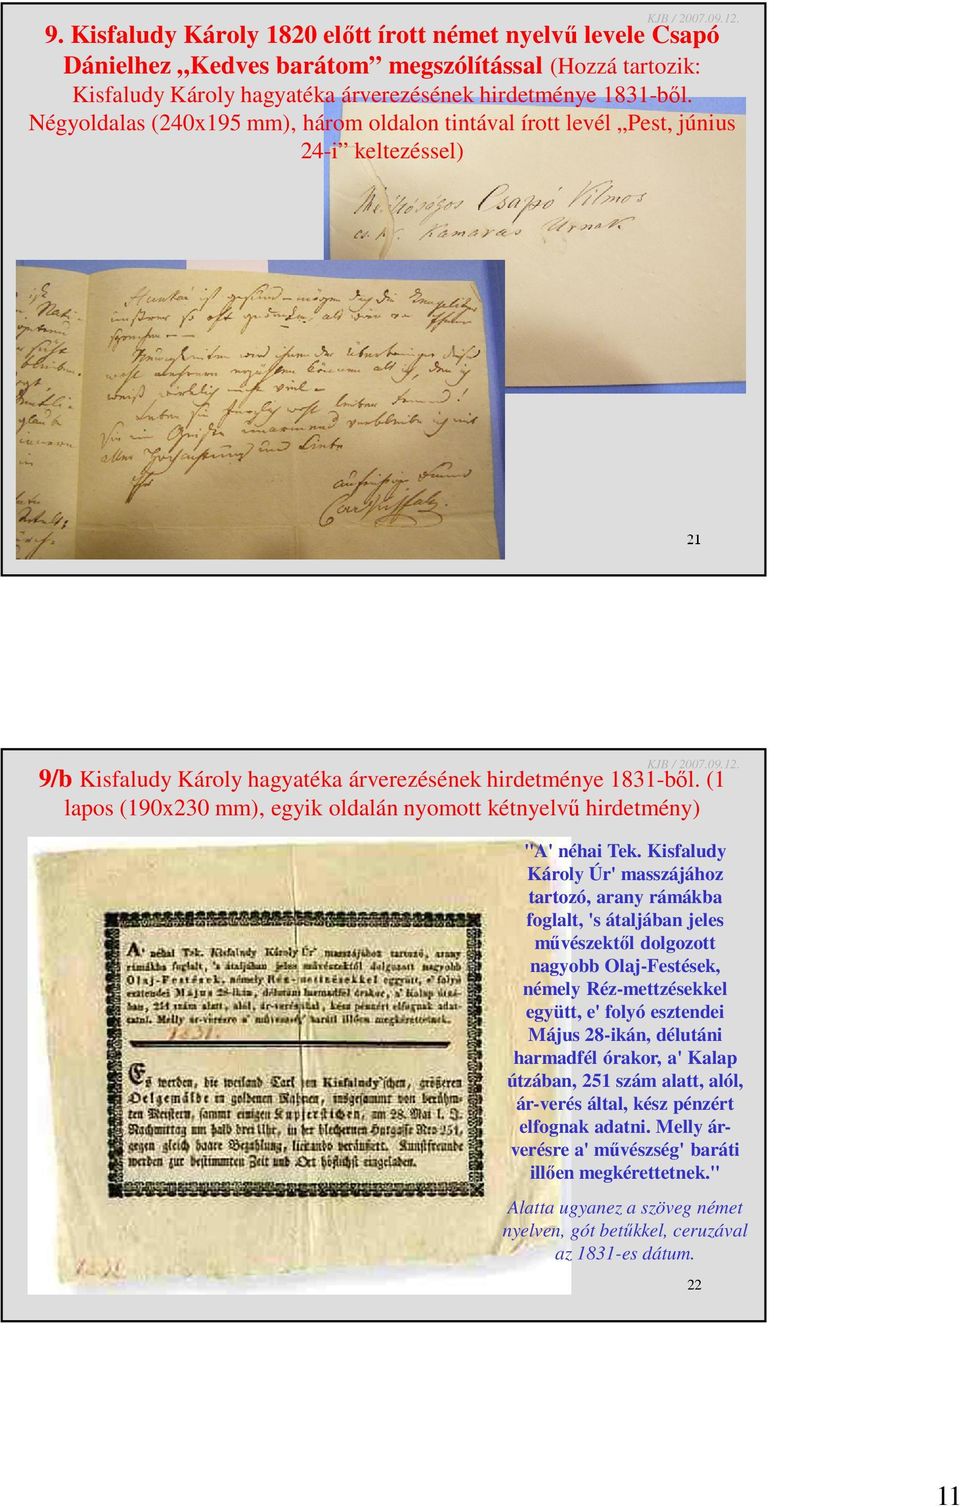 KJB / 2007.09.12.
9. Kisfaludy Károly 1820 előtt írott német nyelvű levele Csapó
Dánielhez „Kedves barátom” megszólítással (Hozzá tartozik:
Kisfaludy Károly hagyatéka árverezésének hirdetménye 1831-ből.
Négyoldalas (240x195 mm), három oldalon tintával írott levél „Pest, június
24-i” keltezéssel)
Csapó Vilmos
cs. k. Kamarás Urnak
Hunkár ist gesund – mögen
so oft als wir von
sprochen –
wird ihnen der Überbringer
wohl erzählen können als ich, den ich
weiß wirklich nicht viel –
Leben Sie wohl lieber Freund!
Sie im Geiste umarmend verbleibe ich mit
aller Hochachtung und Liebe
Ihr
aufrichtiger Freund
21
KJB / 2007.09.12.
9/b Kisfaludy Károly hagyatéka árverezésének hirdetménye 1831-ből. (1
lapos (190x230 mm), egyik oldalán nyomott kétnyelvű hirdetmény)
A' néhai Tek. Kisfaludy Károly Úr' masszájához tartozó, arany
rámákba foglalt, 's átaljában jeles művészektől dolgozott nagyobb
Olaj-Festések, némely Réz-mettzésekkel együtt, e' folyó
esztendei Május 28-ikán, délutáni harmadfél órakor, a' Kalap útzá-
ban, 251 szám alatt, alól, ár-verés által, kész pénzért elfognak adat-
tatni. Melly ár-verésre a' művészség' baráti illően megkérettetnek.
1831.
Es werden, die weiland Carl von Kisfaludy'schen, größeren
Oelgemälde in goldenen Rahmen, insgesammt von berühm-
ten Meistern, sammt einigen Kupferstichen, am 28. Mai l. J.
Nachmittag um halb drei Uhr, in der blechernen Hutgasse Nro 251,
gegen gleich baare Bezahlung, licitando veräußert. Kunstfreunde
werden zur bestimmten Zeit und Ort höflichst eingeladen.
"A' néhai Tek. Kisfaludy
Károly Úr' masszájához
tartozó, arany rámákba
foglalt, 's átaljában jeles
művészektől dolgozott
nagyobb Olaj-Festések,
némely Réz-mettzésekkel
együtt, e' folyó esztendei
Május 28-ikán, délutáni
harmadfél órakor, a' Kalap
útzában, 251 szám alatt, alól,
ár-verés által, kész pénzért
elfognak adatni. Melly ár-
verésre a' művészség' baráti
illően megkérettetnek."
Alatta ugyanez a szöveg német
nyelven, gót betűkkel, ceruzával
az 1831-es dátum.
22
11